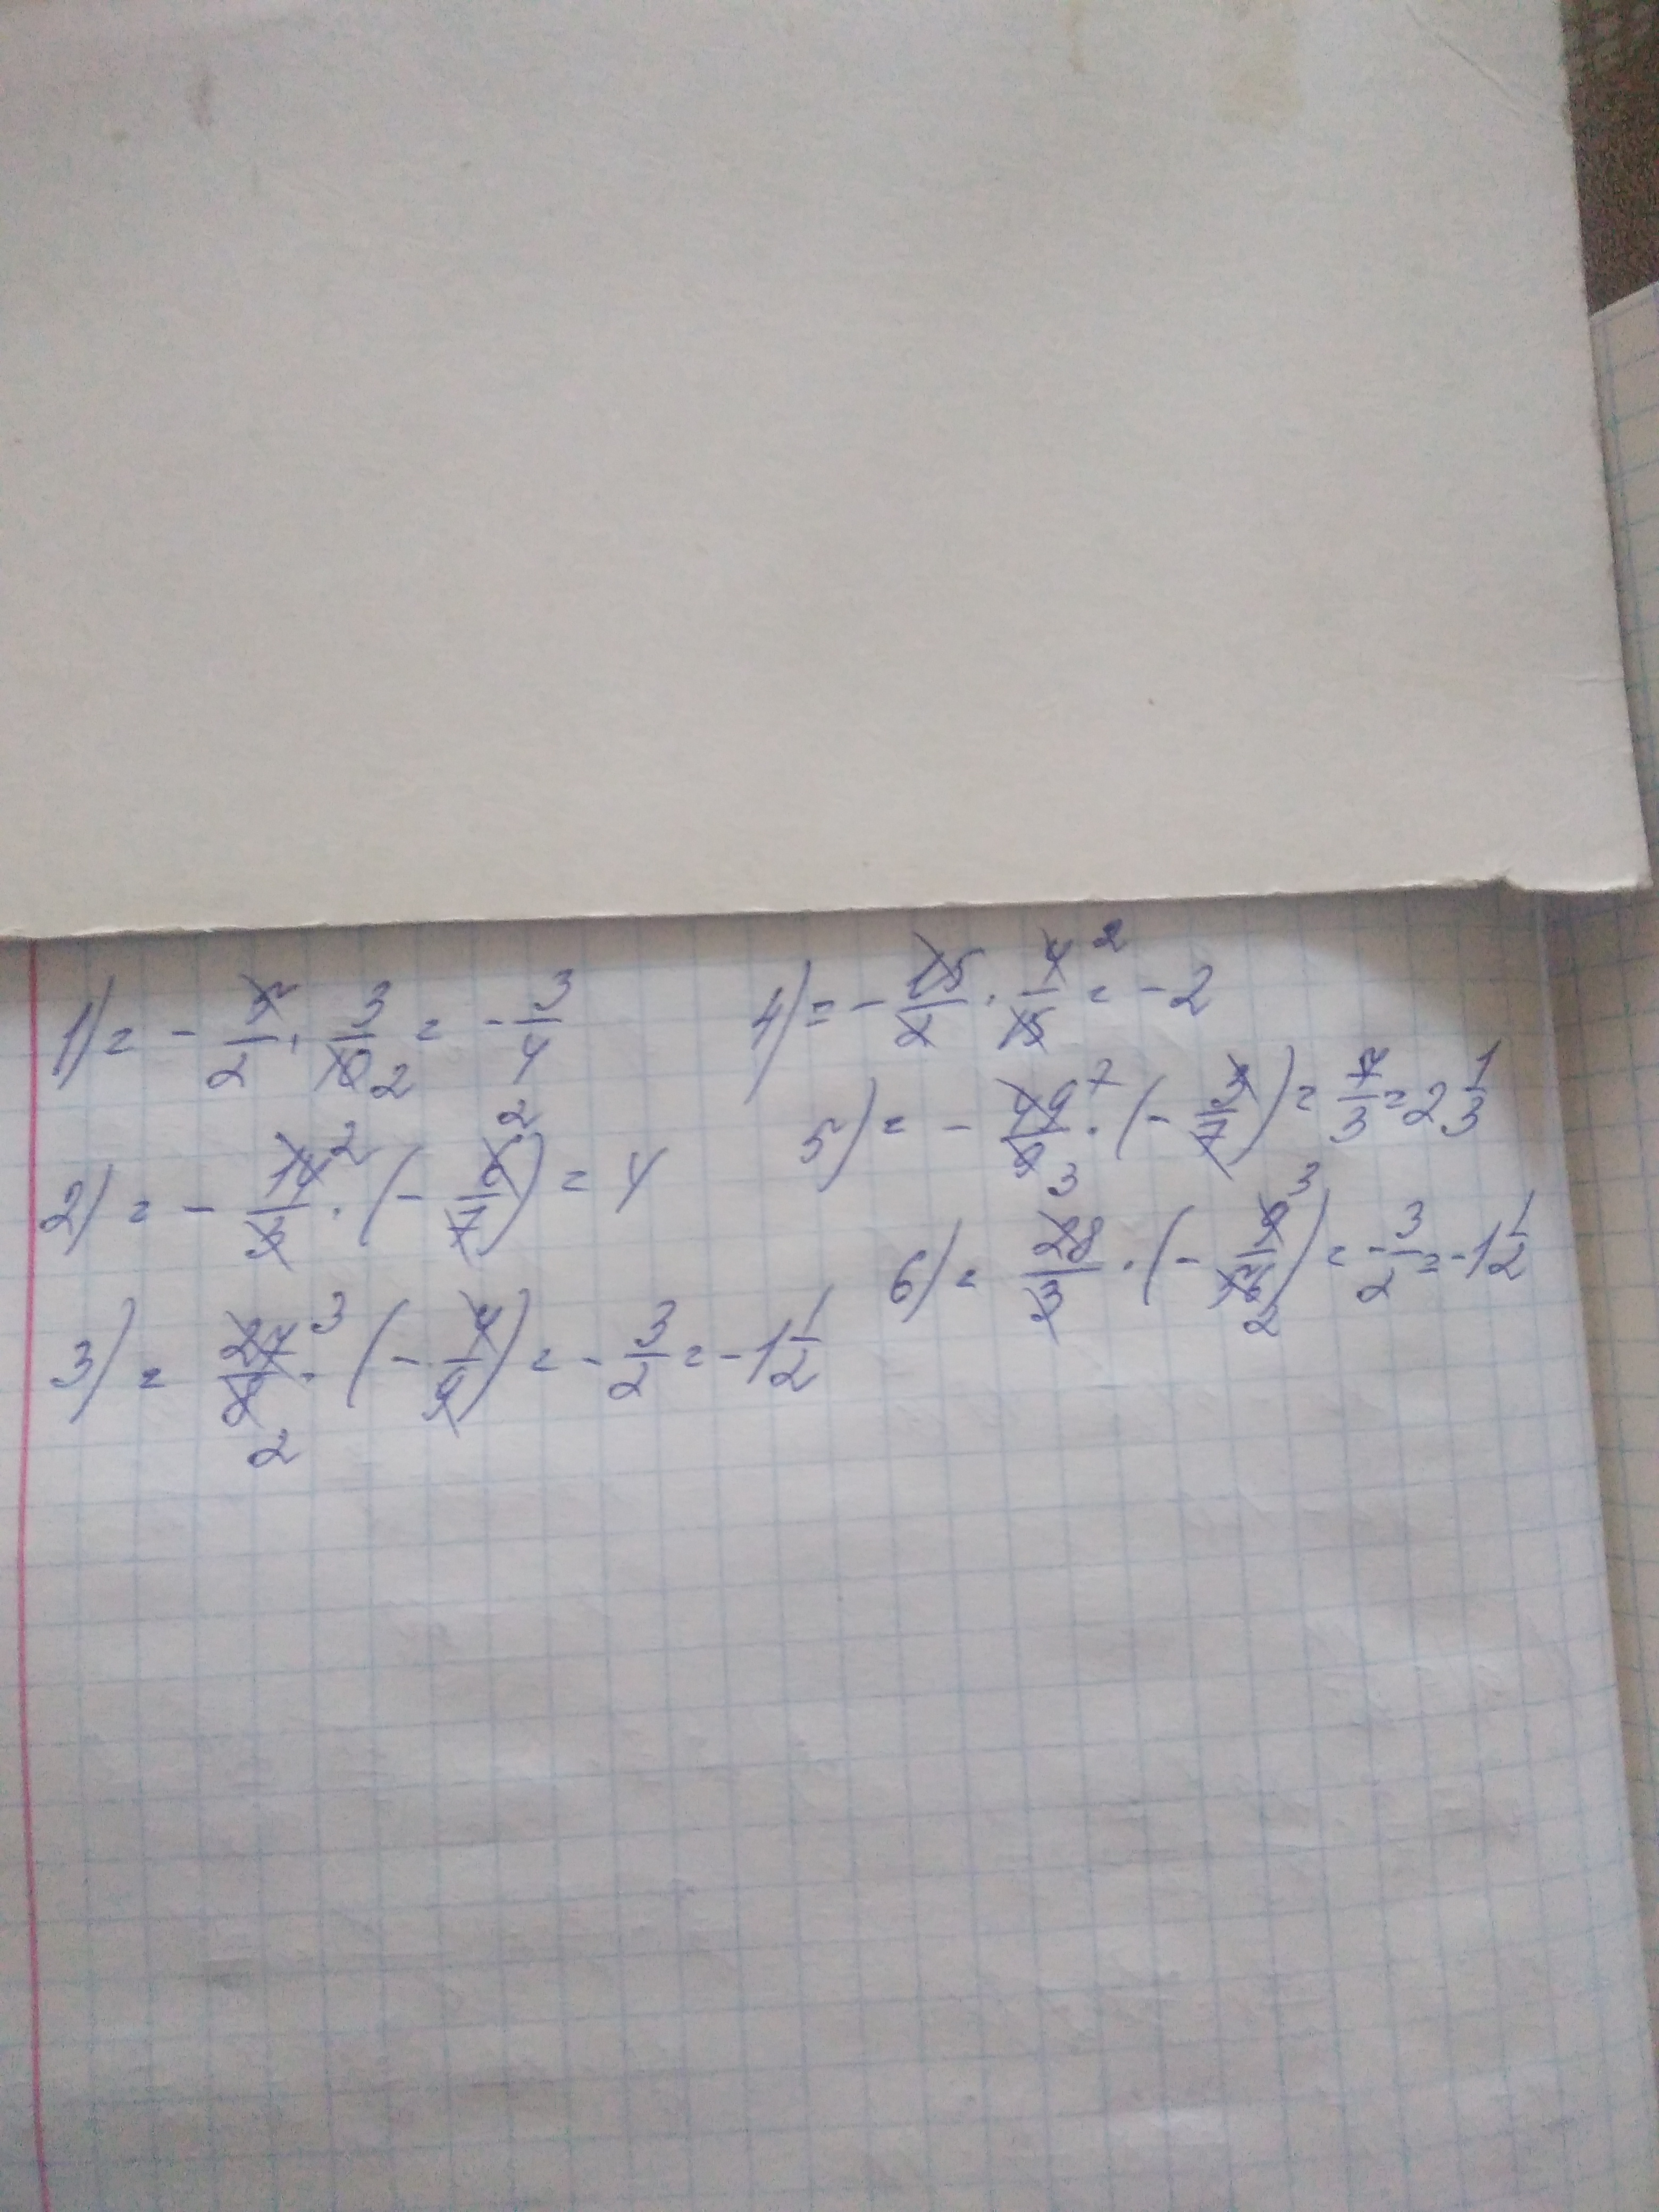 1) = - 5/2 · 3/10 2 = - 3/4
2) = - 14/3 2 · (- 6/7 2) = 4
3) = 27/8 3 2 · (- 4/9) = - 3/2 = -1 1/2
4) = - 15/2 · 4/15 2 = - 2
5) = - 49/9 7 3 · (- 3/7) = 7/3 = 2 1/3
6) = 28/3 · (- 9/56 3 2) = - 3/2 = -1 1/2